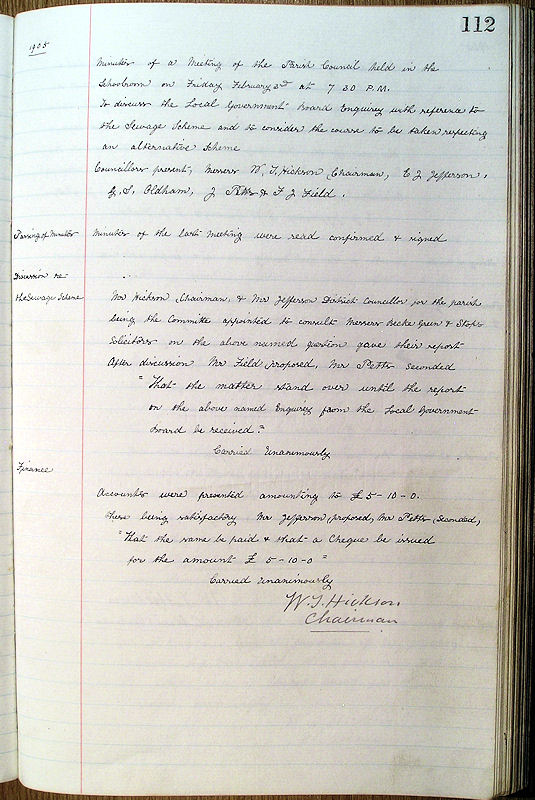 112
1905
Minutes of a Meeting of the Parish Council held in the
Schoolroom on Friday February 3rd at 7 30 P.M.
To discuss the Local Government Board Enquirey with reference to
the Sewage Scheme and to consider the course to be taken respecting
an alternative Scheme
Councillors present, Messrs W. T. Hickson Chairman, C J Jefferson,
G. S. Oldham, J Petts & F J Field.
Passing of Minutes
Minutes of the last Meeting were read confirmed & signed
Discussion re
the Sewage Scheme
Mr Hickson Chairman, & Mr Jefferson District Councillor for the parish
being the Committee appointed to consult Messrs Becke Green & Stops
Solicitors on the above named question gave their report
After discussion Mr Field proposed, Mr Petts seconded
"That the matter stand over until the report
on the above named Enquirey from the Local Government
Board be received."
Carried Unanimously
Finance
Accounts were presented amounting to £5-10-0.
these being satisfactory Mr Jefferson, proposed, Mr Petts, Seconded,
"That the same be paid & that a Cheque be issued
for the amount £ 5-10-0"
Carried Unanimously
W. T. Hickson
Chairman